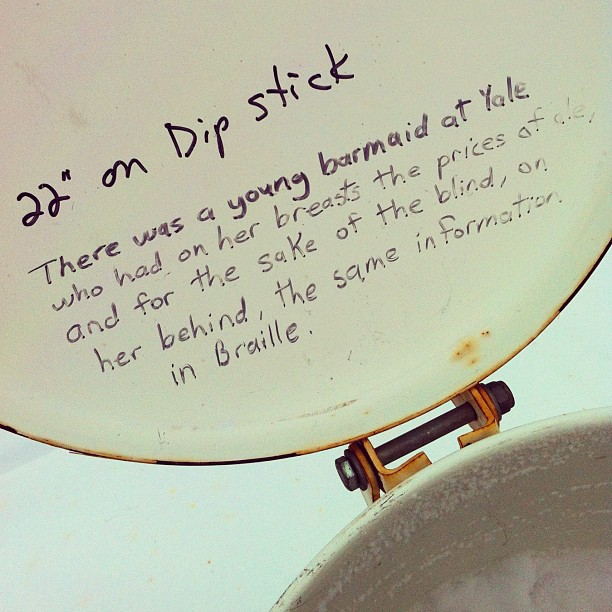 22" on Dip stick
There was a young barmaid at Yale
who had on her breasts the prices of ale,
and for the sake of the blind, on
her behind, the same information
in Braille.